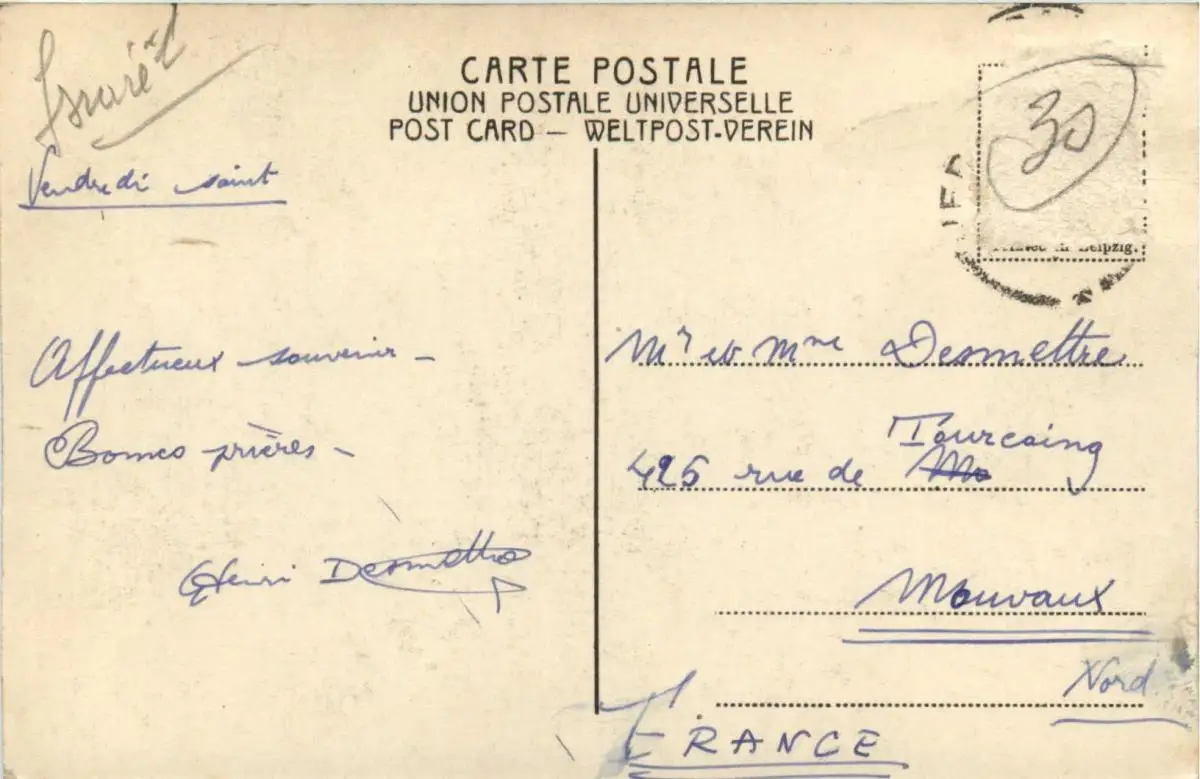 CARTE POSTALE
UNION POSTALE UNIVERSELLE
POST CARD – WELTPOST-VEREIN
30
Vendredi saint
Affectueux souvenir –
Bonnes prières –
Henri Desmettre
Leipzig.
Mr et Mme Desmettre
Tourcoing
425 rue de
Mouvaux
Nord
FRANCE